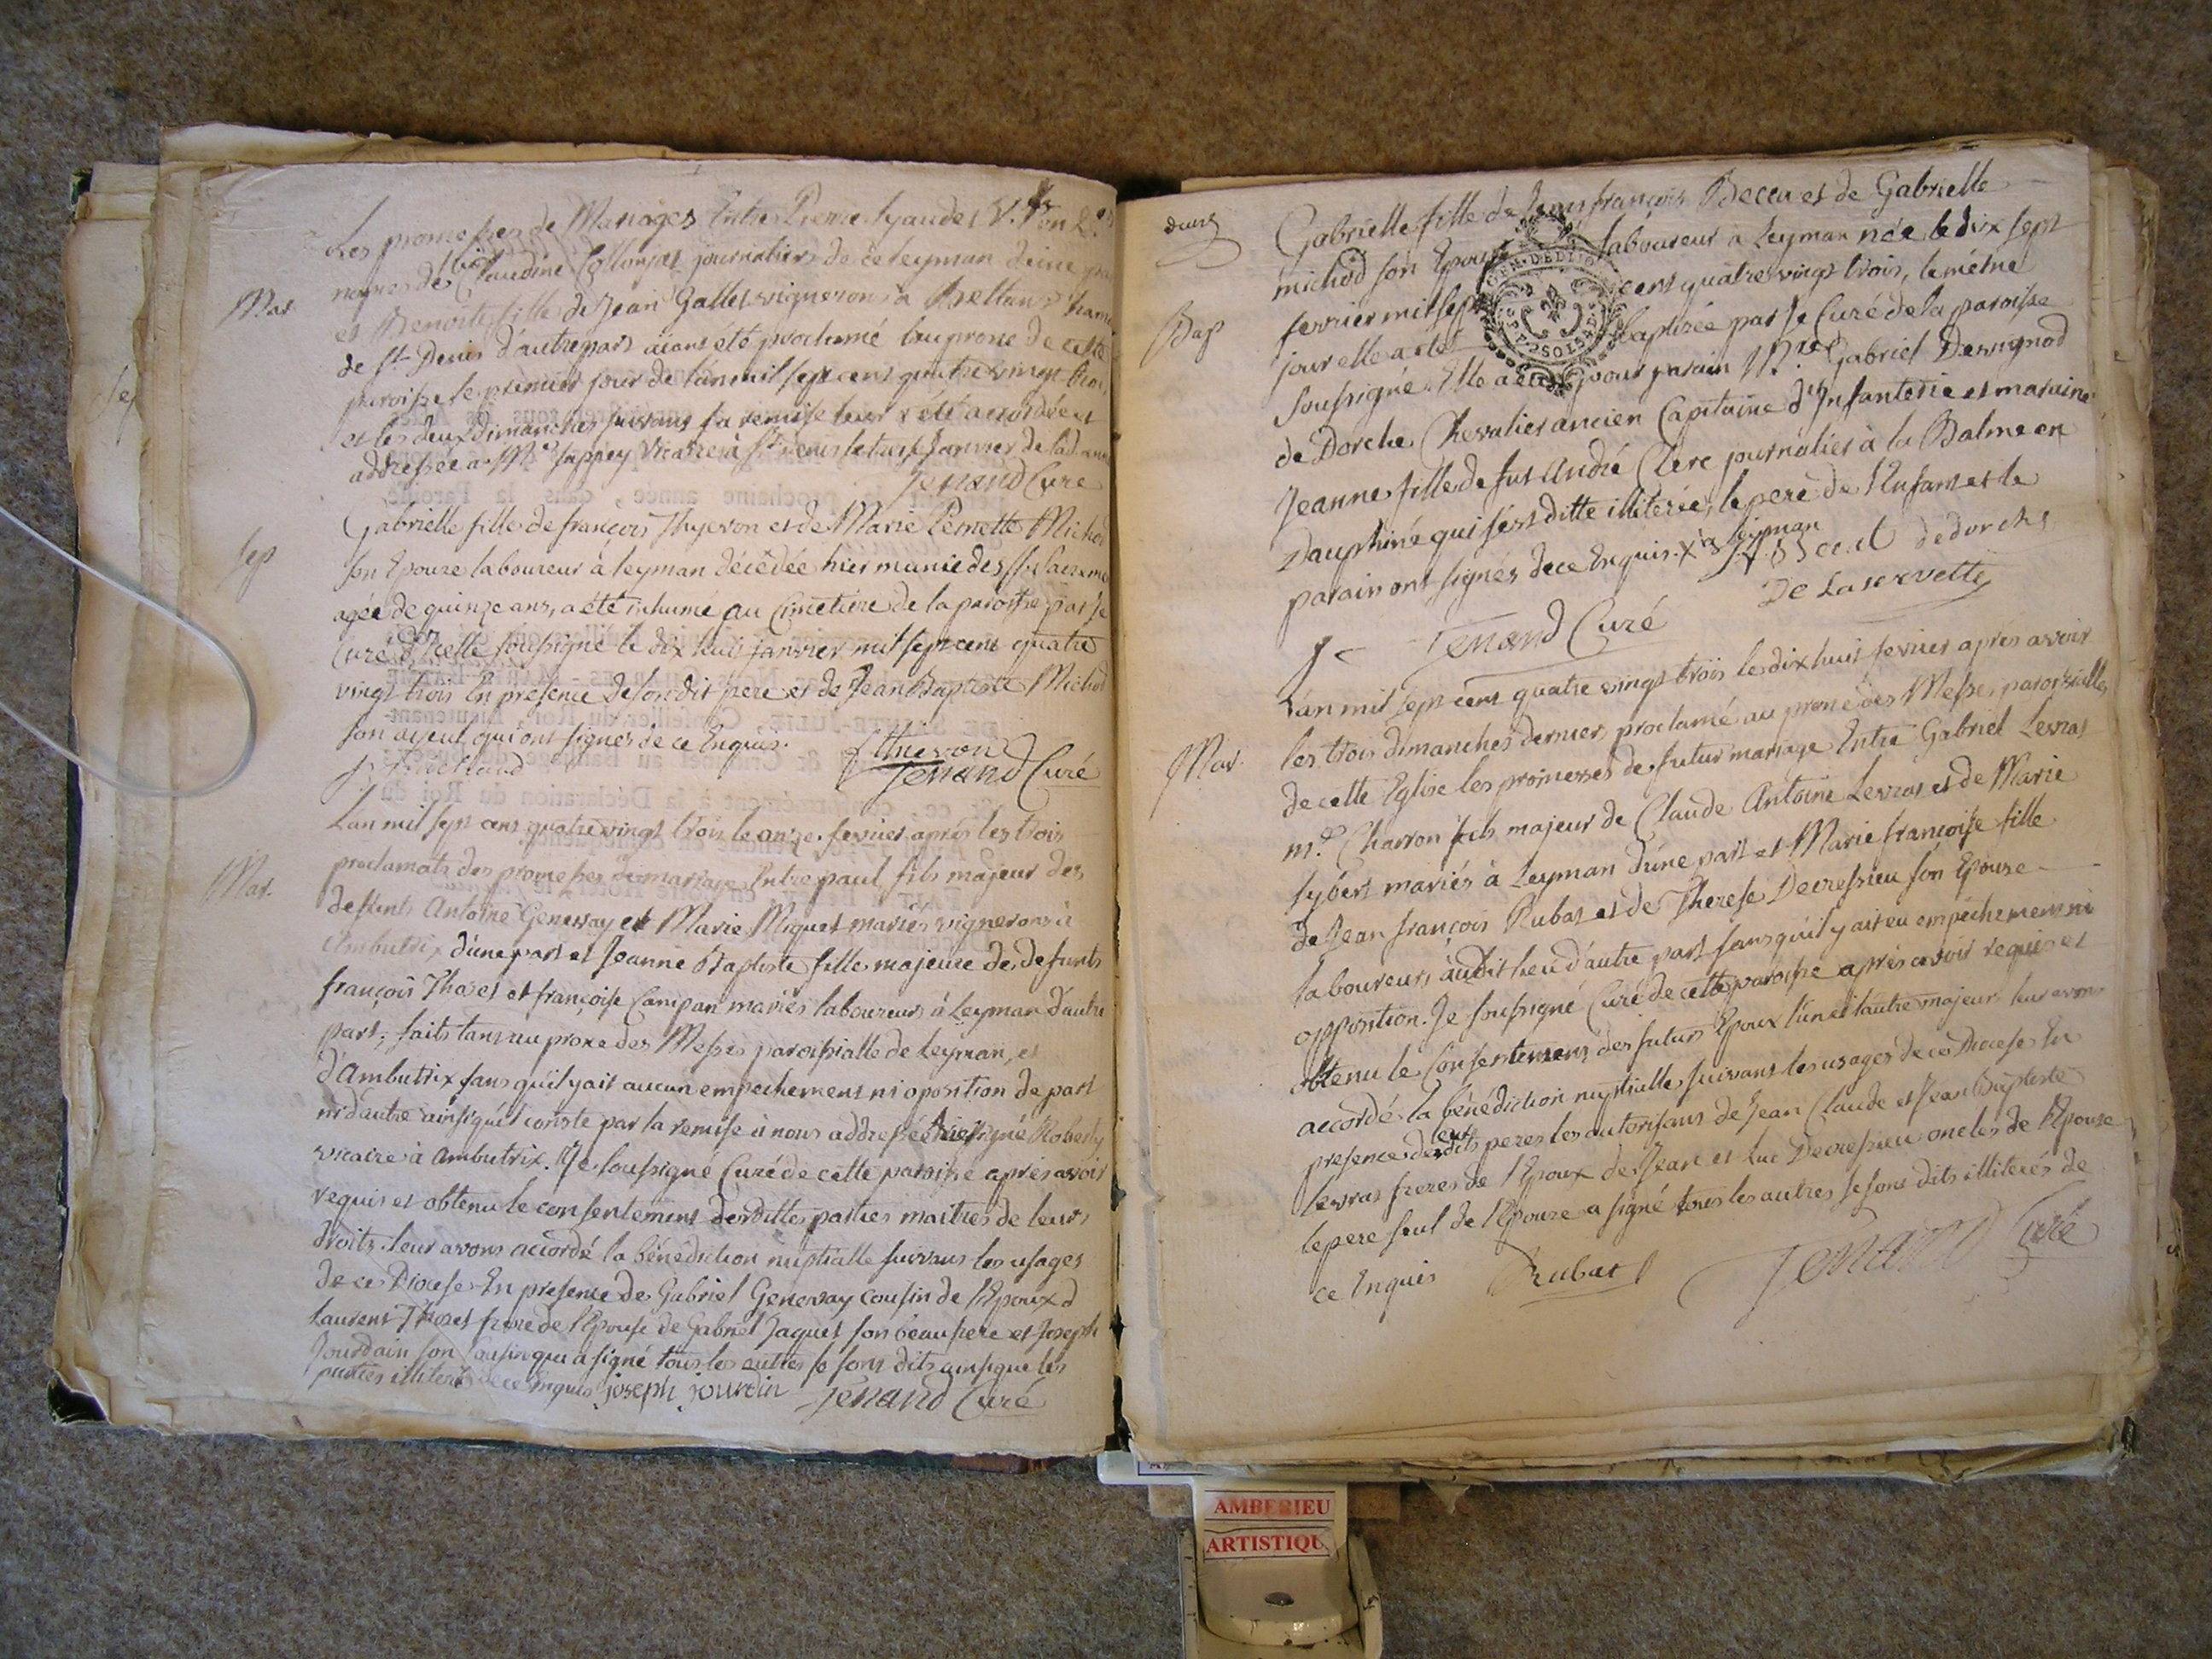 Les promesses de Mariages Entre Pierre Hyaudet V.
noces de Claudine Collonjat journaliers de ce leyman d'une
Mar.
et Benoite fille de Jean Gallet vignerons a
de St Denis d'autre part aiant eté proclamé au prone de cette
paroisse le premier jour de l'an mil sept cent quatre vingt trois
et les deux dimanches suivans la remise leur a été accordée et
addressée a Mr sappey vicaire à St Denis janvier de
Jenand Curé
Gabrielle fille de françois Thyevon et de Marie Pernette Michod
sep
son Epouze laboureur à leyman décédée hier munie des Sts Sacrem
agée de quinze ans, a été inhumé au Cimetiere de la paroisse par je
Curé d'Icelle soussigné le dix huit janvier mil sept cent quatre
vingt trois En presence de son dit pere et de Jean Baptiste Michod
son ayeul qui ont signés de ce Enquis.
f thuevon
Jenand Curé
L'an mil sept cent quatre vingt trois le onze fevrier après les trois
Mar.
proclamats des promesses de mariage Entre paul fils majeur des
defunts Antoine Genevay et Marie Miguet mariés vignerons à
Ambutrix d'une part et Jeanne Baptiste fille majeure de defunts
françois Thoset et françoise Campan mariés laboureurs à Leyman d'autre
part; faits tant au prone des Messes paroissialle de Leyman, et
d'Ambutrix sans qu'il y ait aucun empechement ni oposition de part
ni d'autre ainsi qu'il conste par la remise à nous addressée signé Roberty
vicaire à Ambutrix. Je soussigné Curé de cette paroisse après avoir
requis et obtenu le consentement desdittes parties maitres de leurs
droits leur avons accordé la bénédiction nuptialle suivans les usages
de ce Diocese En presence de Gabriel Genevay cousin de l'Epoux d
Laurent Thoset frere de l'Epouse de Gabriel Jaquet son beaufrere et Joseph
Jourdain son Cousin qui a signé tous les autres se sont dits ainsi que les
parties illiterés de ce Enquis joseph jourdin Jenand Curé
deux
Gabrielle fille de Jean françois Beccu et de Gabrielle
michod son Epouse laboureur à Leyman née le dix sept
Bap
fevrier mil sept cent quatre vingt trois, le même
jour elle a eté baptizée par je Curé de la paroisse
soussigné. Elle a eu pour parain Mre Gabriel Desvignod
de Dorche Chevalier ancien Capitaine d'Infanterie et maraine
Jeanne fille de fut André Clerc journalier à la Balme en
Dauphiné qui s'est ditte illiterée; le pere de l'Enfant et le
parain ont signés de ce Enquis. x à leyman
de dorche
De Laservette
Jenand Curé
L'an mil sept cent quatre vingt trois le dix huit fevrier après avoir
Mar.
les trois dimanches derniers proclamé au prone des Messes paroissialles
de cette Eglise les promesses de futur mariage Entre Gabriel Levrat
md Charron fils majeur de Claude Antoine Levrat et de Marie
Sybert mariés à Leyman d'une part et Marie françoise fille
de Jean françois Rubat et de Therese Decressieu son Epouse
laboureurs audit lieu d'autre part sans qu'il y ait eu empêchement ni
opposition. Je soussigné Curé de cette paroisse après avoir requis et
obtenu le Consentement des futurs Epoux l'un et l'autre majeur leur avons
accordé la bénédiction nuptialle suivans les usages de ce Diocese En
presence de leur dits peres les autorisans de Jean Claude et Jean Baptiste
levrat freres de l'Epoux de Jean et Luc Decressieu oncles de l'Epouse
le pere seul de l'Epouse a signé tous les autres se sont dits illiterés de
ce Enquis Rubat Jenand Curé
AMBERIEU
ARTISTIQU